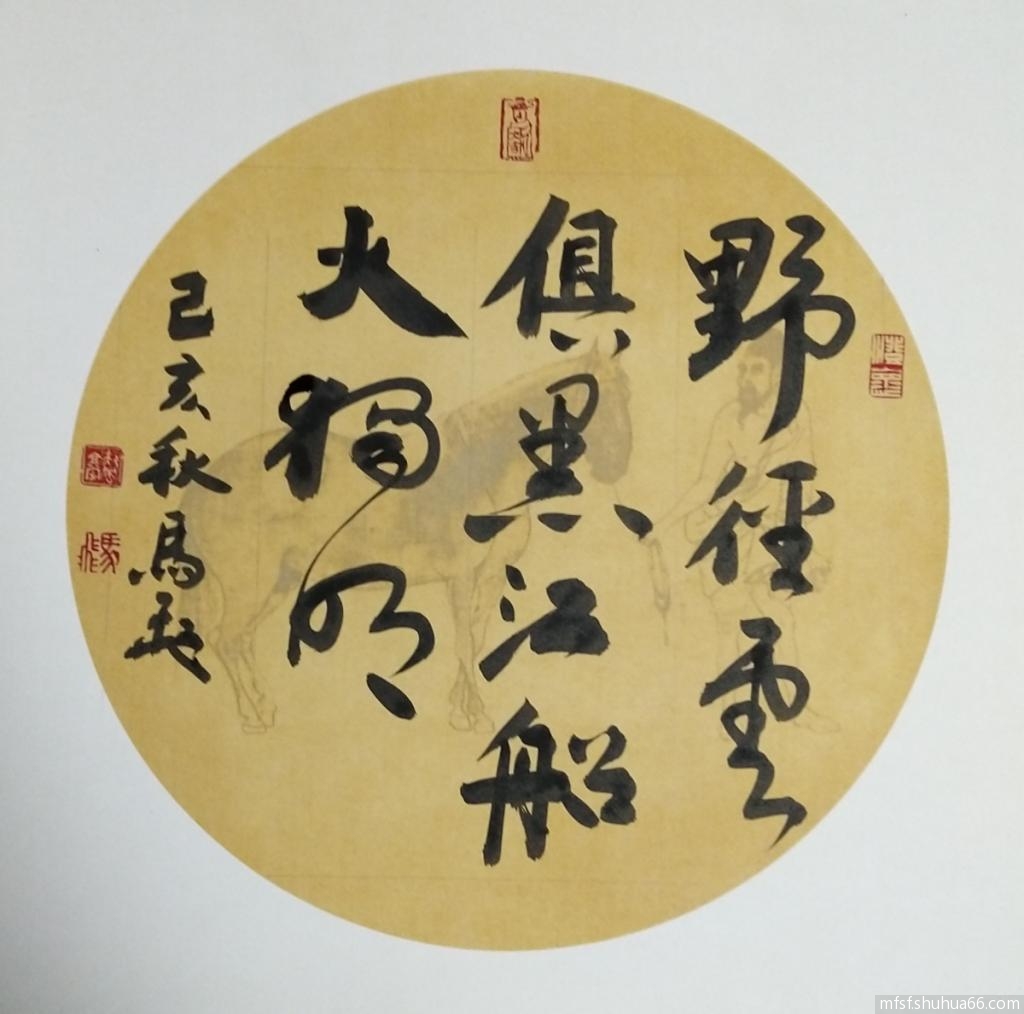 野徑雲
俱黑江船
火獨明
己亥秋馬
mfsf.shuhua66.com